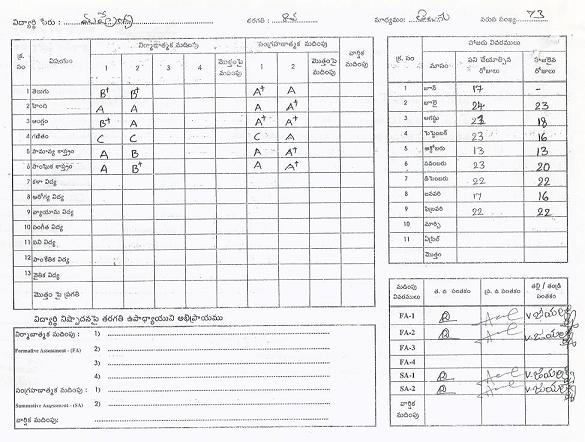 విద్యార్థి పేరు : తరగతి : మాధ్యమం: తెలుగు వరుస సంఖ్య: 73
క్ర. సం విషయం నిర్మాణాత్మక మదింపు సంగ్రహణాత్మక మదింపు వార్షిక మదింపు
1 2 3 4 మొత్తంపై మదింపు 1 2 మొత్తంపై మదింపు
1 తెలుగు B+ B+ A+ A
2 హింది A A A A+
3 ఆంగ్లం B+ A A+ A+
4 గణితం C C C A
5 సామాన్య శాస్త్రం A B A A+
6 సాంఘిక శాస్త్రం A B+ A A+
7 కళా విద్య
8 ఆరోగ్య విద్య
9 వ్యాయామ విద్య
10 సంగీత విద్య
11 పని విద్య
12 సాంకేతిక విద్య
13 నైతిక విద్య
మొత్తం పై ప్రగతి
విద్యార్థి నిష్పాదనపై తరగతి ఉపాధ్యాయుని అభిప్రాయము
నిర్మాణాత్మక మదింపు : 1)
Formative Assessment - (FA) 2)
3)
4)
సంగ్రహణాత్మక మదింపు : 1)
Summative Assessment - (SA) 2)
వార్షిక మదింపు:
క్ర. సం మాసం హాజరు వివరములు
పని చేయాల్సిన రోజులు హాజరైన రోజులు
1 జూన్ 17 -
2 జూలై 24 23
3 ఆగస్టు 18
4 సెప్టెంబర్ 23 16
5 అక్టోబరు 13 13
6 నవంబరు 23 20
7 డిసెంబరు 22 22
8 జనవరి 17 16
9 ఫిబ్రవరి 22 22
10 మార్చి
11 ఏప్రిల్
మొత్తం
మదింపు వివరములు త. ఉ సంతకం ప్ర. ఉ సంతకం తల్లి / తండ్రి సంతకం
FA-1
FA-2
FA-3
FA-4
SA-1
SA-2
వార్షిక మదింపు